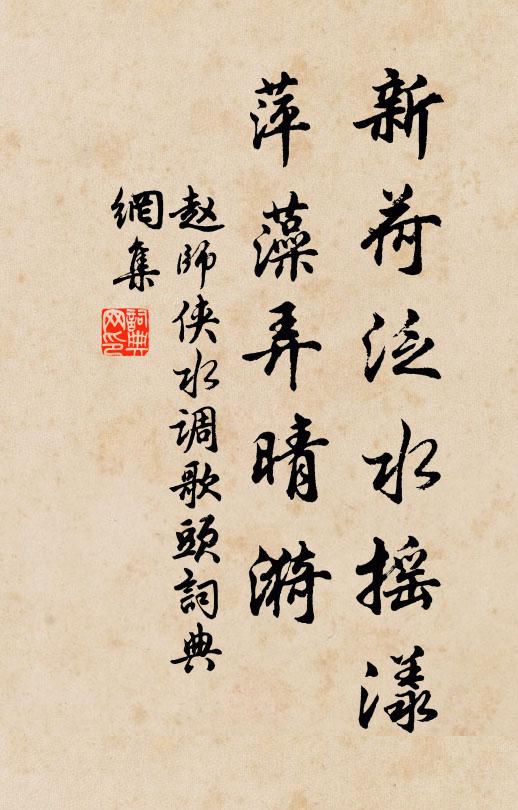 新荷泛水摇漾
萍藻弄晴漪
赵師侠水调歌頭詞典
網集
詞典網印